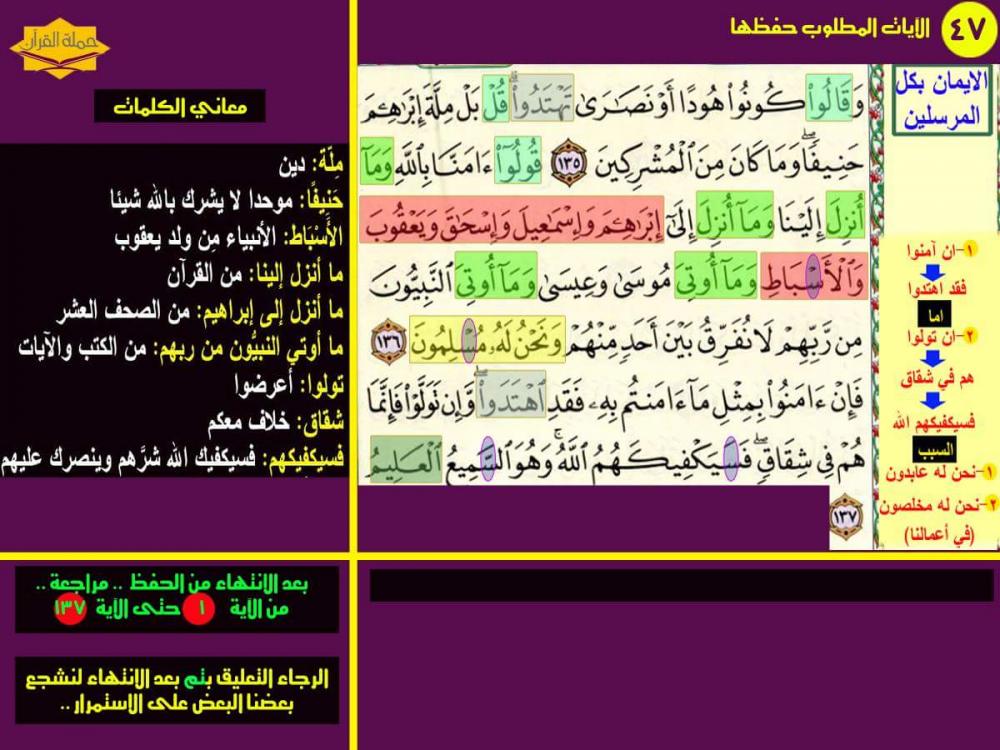 ٤٧
الآيات المطلوب حفظها
حملة القرآن
الايمان بكل
المرسلين
وَقَالُوا۟ كُونُوا۟ هُودًا أَوْ نَصَـٰرَىٰ تَهْتَدُوا۟ ۗ قُلْ بَلْ مِلَّةَ إِبْرَٰهِـۧمَ
حَنِيفًا ۖ وَمَا كَانَ مِنَ ٱلْمُشْرِكِينَ ١٣٥ قُولُوٓا۟ ءَامَنَّا بِٱللَّهِ وَمَآ
أُنزِلَ إِلَيْنَا وَمَآ أُنزِلَ إِلَىٰٓ إِبْرَٰهِـۧمَ وَإِسْمَـٰعِيلَ وَإِسْحَـٰقَ وَيَعْقُوبَ
وَٱلْأَسْبَاطِ وَمَآ أُوتِىَ مُوسَىٰ وَعِيسَىٰ وَمَآ أُوتِىَ ٱلنَّبِيُّونَ
مِن رَّبِّهِمْ لَا نُفَرِّقُ بَيْنَ أَحَدٍ مِّنْهُمْ وَنَحْنُ لَهُۥ مُسْلِمُونَ ١٣٦
فَإِنْ ءَامَنُوا۟ بِمِثْلِ مَآ ءَامَنتُم بِهِۦ فَقَدِ ٱهْتَدَوا۟ ۖ وَّإِن تَوَلَّوْا۟ فَإِنَّمَا
هُمْ فِى شِقَاقٍ ۖ فَسَيَكْفِيكَهُمُ ٱللَّهُ ۚ وَهُوَ ٱلسَّمِيعُ ٱلْعَلِيمُ
١٣٧
١- ان آمنوا
فقد اهتدوا
اما
٢- ان تولوا
هم في شقاق
فسيكفيكهم الله
السبب
١- نحن له عابدون
٢- نحن له مخلصون
(في أعمالنا)
معاني الكلمات
مِلّة: دين
حَنِيفًا: موحدا لا يشرك بالله شيئا
الأَسْبَاط: الأنبياء مِن ولد يعقوب
ما أنزل إلينا: من القرآن
ما أنزل إلى إبراهيم: من الصحف العشر
ما أوتي النبيُّون من ربهم: من الكتب والآيات
تولوا: أعرضوا
شقاق: خلاف معكم
فسيكفيكهم: فسيكفيك الله شرَّهم وينصرك عليهم
بعد الانتهاء من الحفظ .. مراجعة ..
من الآية ١ حتى الآية ١٣٧
الرجاء التعليق بتم بعد الانتهاء لنشجع
بعضنا البعض على الاستمرار ..